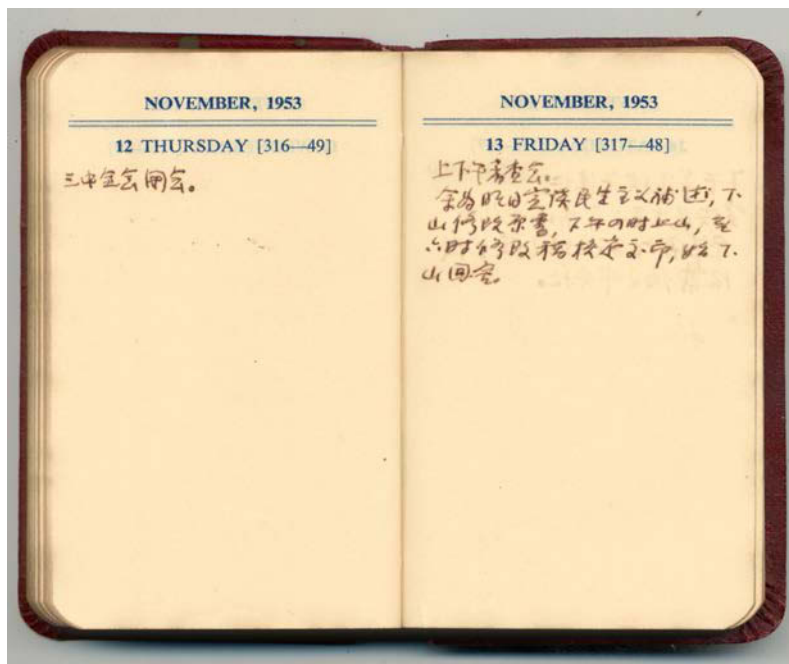 NOVEMBER, 1953
12 THURSDAY [316—49]
三中全会開会。
NOVEMBER, 1953
13 FRIDAY [317—48]
上下午審查会。
余為昨日宣读民生主义補述,下
山修改原書,下午四时上山,至
六时修改稿校定交印,始下
山回宅。